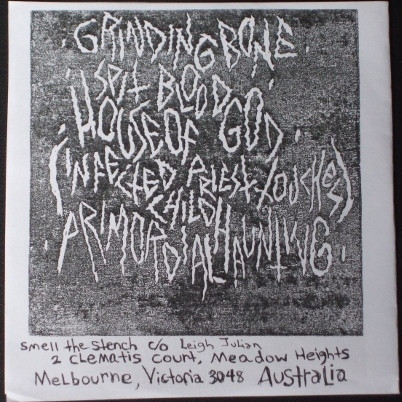 GRINDING BONE.
·SPIT BLOOD·
·HOUSE OF GOD·
(INFECTED PRIEST TOUCHES)
CHILD
·PRIMORDIAL HAUNTING·
smell the stench c/o Leigh Julian
2 Clematis Court, Meadow Heights
Melbourne, Victoria 3048 Australia